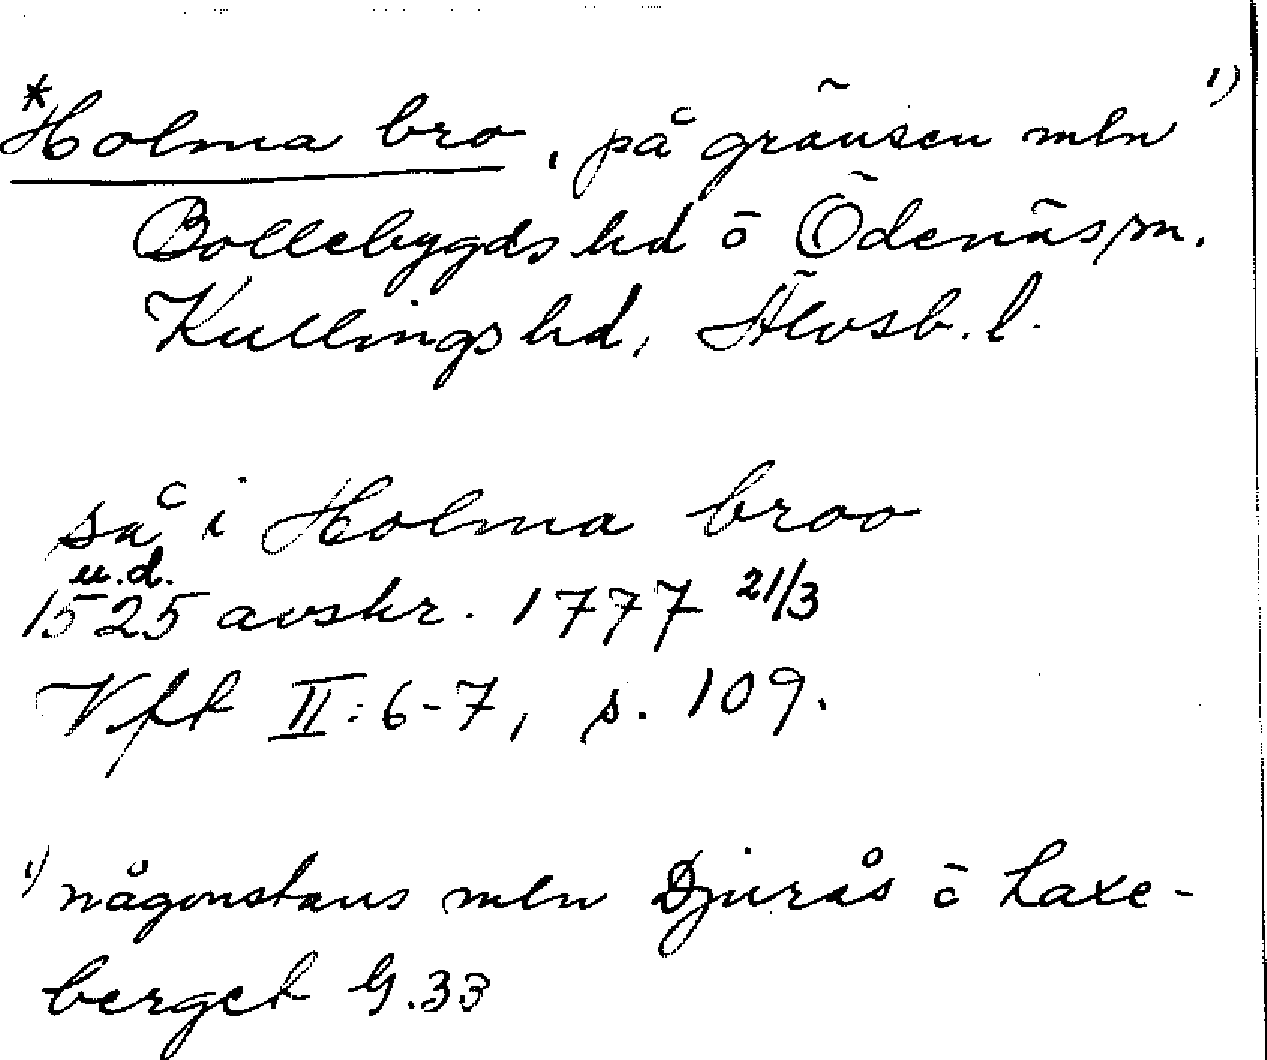 *Holma bro, på gränsen mln ¹)
Bollebygds hd ō Ödenäs sn.
Kullings hd, Älvsb. l.
så i Holma broo
u.d.
1525 avskr. 1777 21/3
Vfft II: 6-7, s. 109.
¹) någonstans mln Djurås ō Laxe-
berget G.33